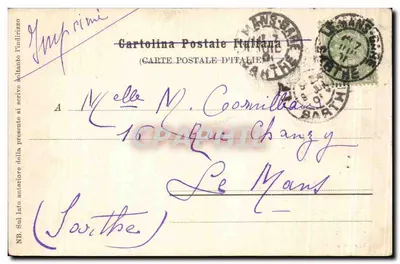 Imprimé
Cartolina Postale Italiana
(CARTE POSTALE D'ITALIE)
A Melle M. Cornilleau
10 Rue Chanzy
Le Mans
(Sarthe)
NB. Sul lato anteriore della presente si scrive soltanto l'indirizzo
LE MANS-GARE
SARTHE
LE MANS-GARE
SARTHE
SARTHE